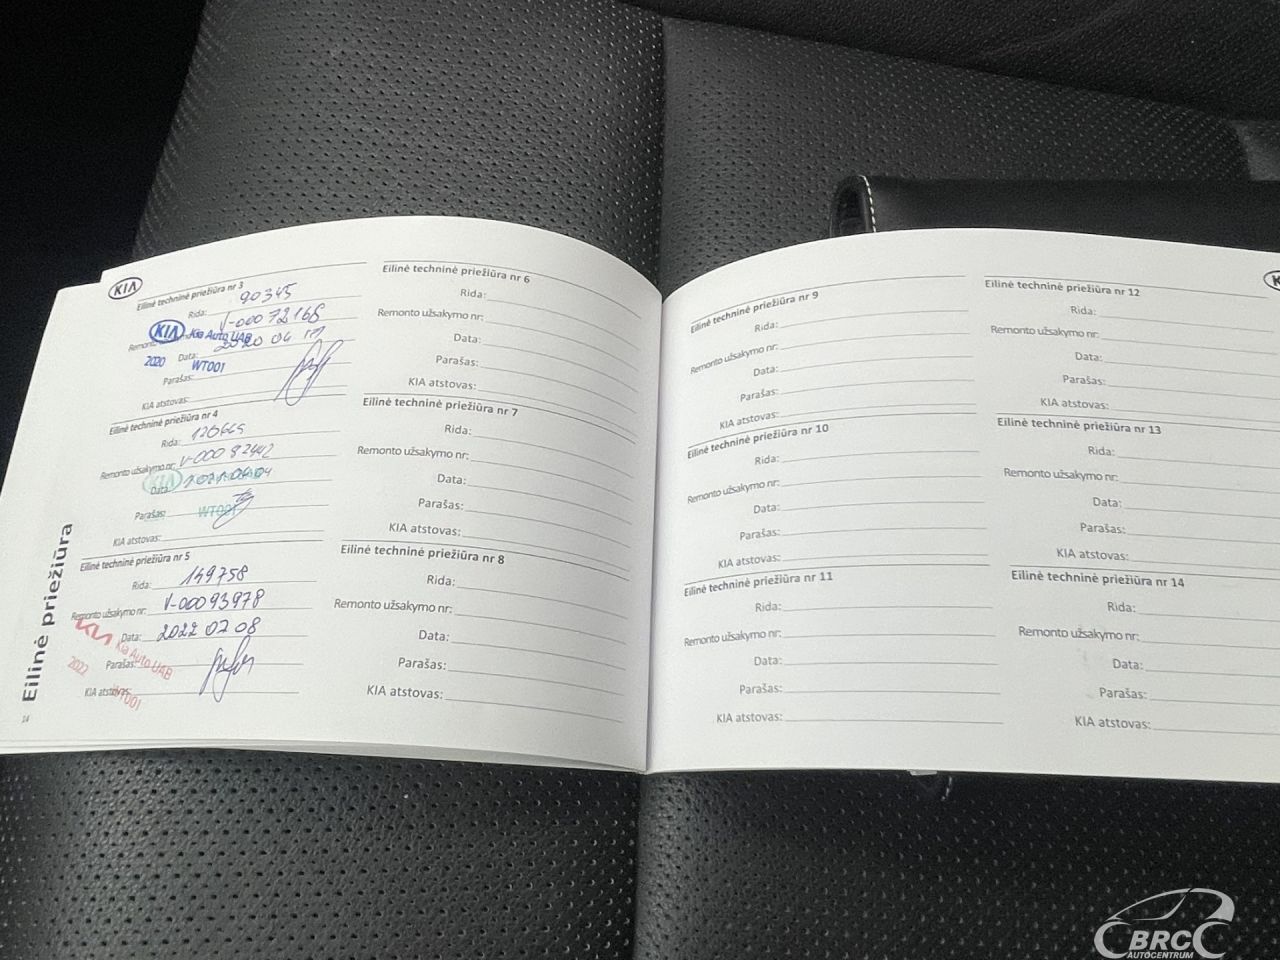 KIA
Eilinė techninė priežiūra nr 3
Rida: 90345
Remonto užsakymo nr: V-00072168
KIA Kia Auto UAB
Data: 2020 04
2020 WT001
Parašas:
KIA atstovas:
Eilinė techninė priežiūra nr 4
Rida:
Remonto užsakymo nr: V-00082442
KIA
Data:
Parašas: WT001
KIA atstovas:
Eilinė techninė priežiūra nr 5
Rida: 149758
Remonto užsakymo nr: V-00093978
Data: 2022 07 08
KIA Kia Auto UAB
Parašas:
2022 WT001
KIA atstovas:
Eilinė priežiūra
14
Eilinė techninė priežiūra nr 6
Rida:
Remonto užsakymo nr:
Data:
Parašas:
KIA atstovas:
Eilinė techninė priežiūra nr 7
Rida:
Remonto užsakymo nr:
Data:
Parašas:
KIA atstovas:
Eilinė techninė priežiūra nr 8
Rida:
Remonto užsakymo nr:
Data:
Parašas:
KIA atstovas:
Eilinė techninė priežiūra nr 9
Rida:
Remonto užsakymo nr:
Data:
Parašas:
KIA atstovas:
Eilinė techninė priežiūra nr 10
Rida:
Remonto užsakymo nr:
Data:
Parašas:
KIA atstovas:
Eilinė techninė priežiūra nr 11
Rida:
Remonto užsakymo nr:
Data:
Parašas:
KIA atstovas:
Eilinė techninė priežiūra nr 12
Rida:
Remonto užsakymo nr:
Data:
Parašas:
KIA atstovas:
Eilinė techninė priežiūra nr 13
Rida:
Remonto užsakymo nr:
Data:
Parašas:
KIA atstovas:
Eilinė techninė priežiūra nr 14
Rida:
Remonto užsakymo nr:
Data:
Parašas:
KIA atstovas:
BRC
AUTOCENTRUM